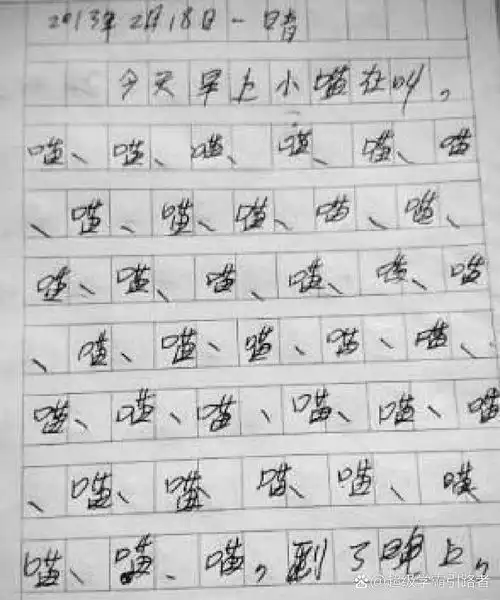 2013年2月18日 一 晴
今天早上小喵在叫，
喵、喵、喵、喵、喵、喵
、喵、喵、喵、喵、喵、
喵、喵、喵、喵、喵、喵
、喵、喵、喵、喵、喵、
喵、喵、喵、喵、喵、喵
、喵、喵 喵、喵、喵
喵、喵、喵，到了晚上，
@超级学霸引路者